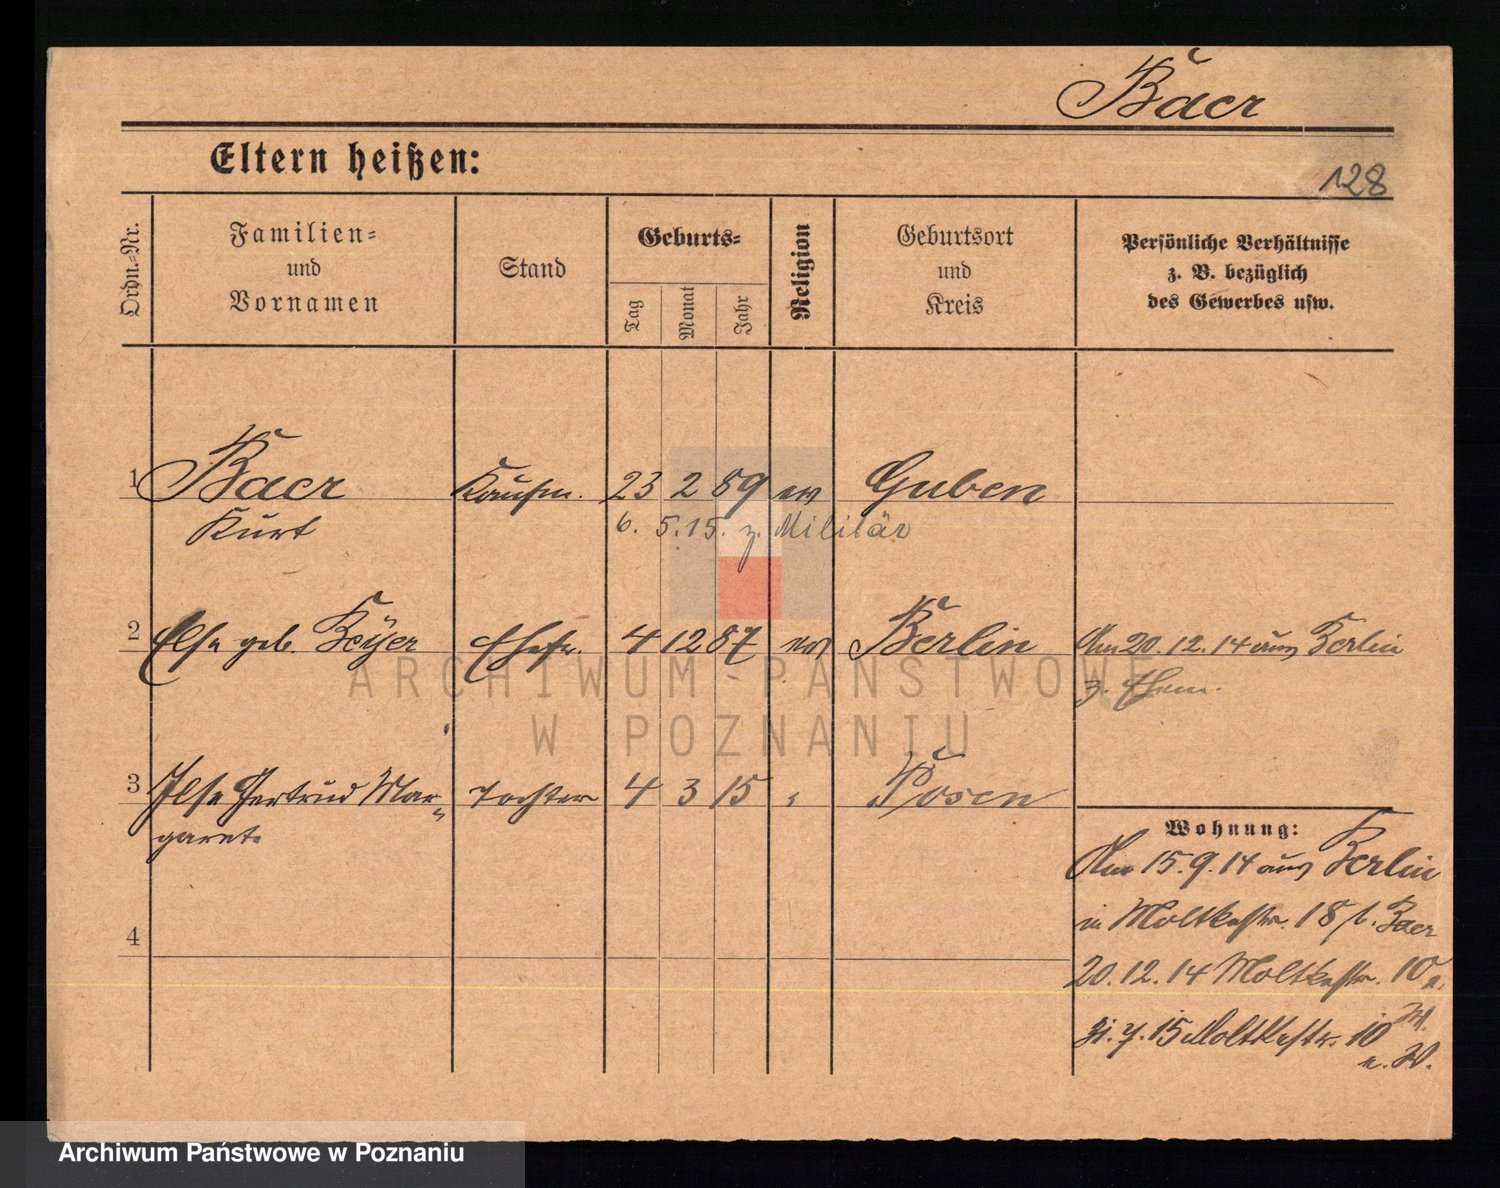 Baer
Eltern heißen:
128
Ordn.-Nr.
Familien-
und
Vornamen
Stand
Geburts-
Tag
Monat
Jahr
Religion
Geburtsort
und
Kreis
Persönliche Verhältnisse
z. B. bezüglich
des Gewerbes usw.
1 Baer Kaufm. 23 2 89 ev Guben
Kurt 6. 5. 15. z. Militär
2 Else geb. Beyer Ehefr. 4 12 87 ev Berlin Am 20.12.14 aus Berlin
z. Ehem.
3 Ilse Gertrud Mar- Tochter 4 3 15 Posen
garet.
Wohnung:
Am 15.9.14 aus Berlin
in Moltkestr. 18 b. Baer
4
20.12.14 Moltkestr. 10
15 Moltkestr. 10
ARCHIWUM PAŃSTWOWE
W POZNANIU
Archiwum Państwowe w Poznaniu